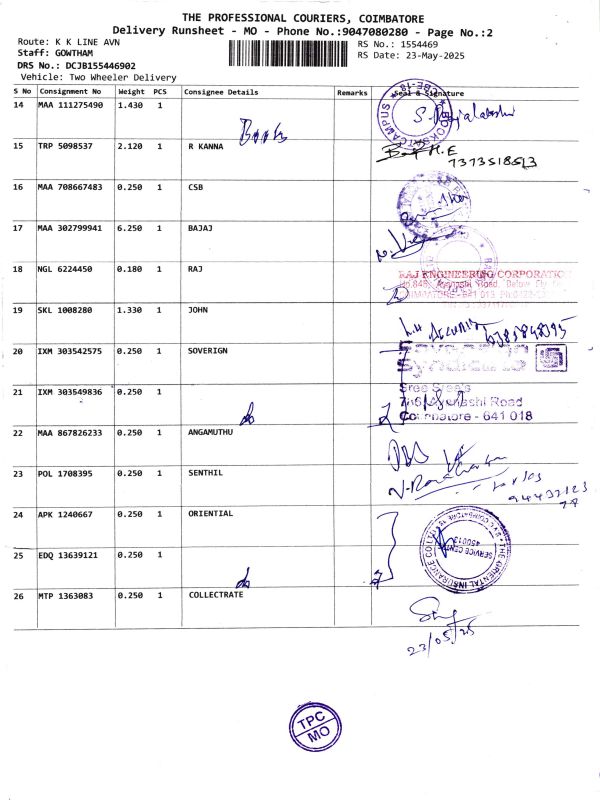 THE PROFESSIONAL COURIERS, COIMBATORE
Delivery Runsheet - MO - Phone No.:9047080280 - Page No.:2
Route: K K LINE AVN
Staff: GOWTHAM
DRS No.: DCJB155446902
Vehicle: Two Wheeler Delivery
RS No.: 1554469
RS Date: 23-May-2025
S No Consignment No Weight PCS Consignee Details Remarks Seal & Signature
14 MAA 111275490 1.430 1
Books
15 TRP 5098537 2.120 1 R KANNA
7373518513
16 MAA 708667483 0.250 1 CSB
17 MAA 302799941 6.250 1 BAJAJ
18 NGL 6224450 0.180 1 RAJ
RAJ ENGINEERING CORPORATION
19 SKL 1008280 1.330 1 JOHN
20 IXM 303542575 0.250 1 SOVERIGN
21 IXM 303549836 0.250 1
do
Sree Sree's
Coimbatore - 641 018
22 MAA 867826233 0.250 1 ANGAMUTHU
23 POL 1708395 0.250 1 SENTHIL
24 APK 1240667 0.250 1 ORIENTIAL
THE ORIENTAL INSURANCE CO LTD
SERVICE CENTRE
450013
25 EDQ 13639121 0.250 1
do
26 MTP 1363083 0.250 1 COLLECTRATE
23/05/25
TPC
MO